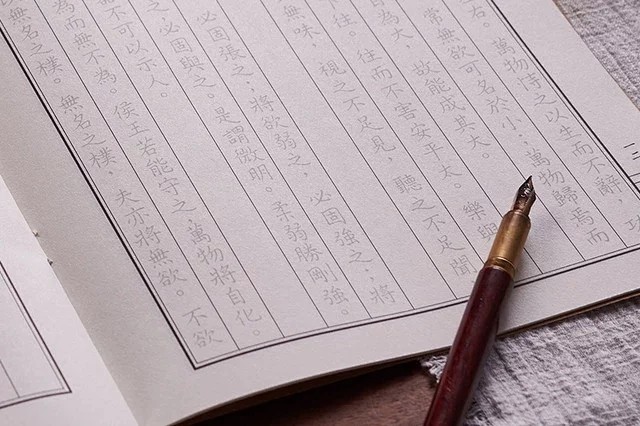 右。萬物恃之以生而不辭，
常無欲可名於小；萬物歸焉而
為大，故能成其大。
下往。往而不害安平太。樂與
無味，視之不足見，聽之不足聞
必固張之；將欲弱之，必固強之；將
之，必固與之。是謂微明。柔弱勝剛強。
不可以示人。
為而無不為。侯王若能守之，萬物將自化。
無名之樸。無名之樸，夫亦將無欲。不欲